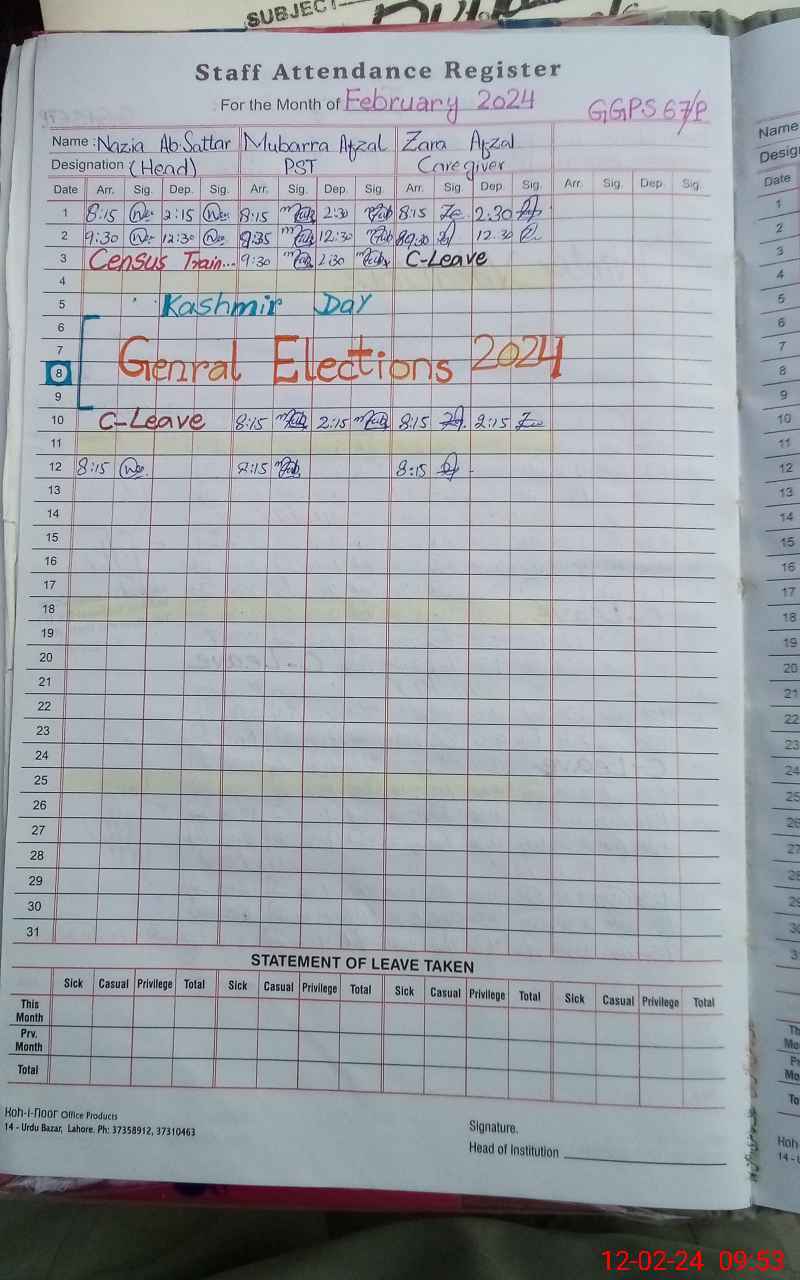 SUBJECT
Staff Attendance Register
For the Month of February 2024 GGPS 67/P
Name : Nazia Ab Sattar Mubarra Afzal Zara Afzal
Designation (Head) PST Caregiver
Date Arr. Sig. Dep. Sig. Arr. Sig. Dep. Sig. Arr. Sig. Dep. Sig. Arr. Sig. Dep. Sig.
1 8:15 2:15 8:15 2:30 8:15 2:30
2 9:30 12:30 9:35 12:30 9:30 12:30
3 Census Train... 9:30 2:30 C-Leave
4
5 Kashmir Day
6
7 Genral Elections 2024
8
9
10 C-Leave 8:15 2:15 8:15 2:15
11
12 8:15 8:15
13
14
15
16
17
18
19
20
21
22
23
24
25
26
27
28
29
30
31
STATEMENT OF LEAVE TAKEN
Sick Casual Privilege Total Sick Casual Privilege Total Sick Casual Privilege Total Sick Casual Privilege Total
This
Month
Prv.
Month
Total
Koh-i-noor Office Products
14 - Urdu Bazar, Lahore. Ph: 37358912, 37310463
Signature.
Head of Institution
Name
Date
1
2
3
4
5
6
7
8
9
10
11
12
13
14
15
16
17
18
19
20
21
22
23
24
25
26
27
28
29
30
12-02-24 09:53